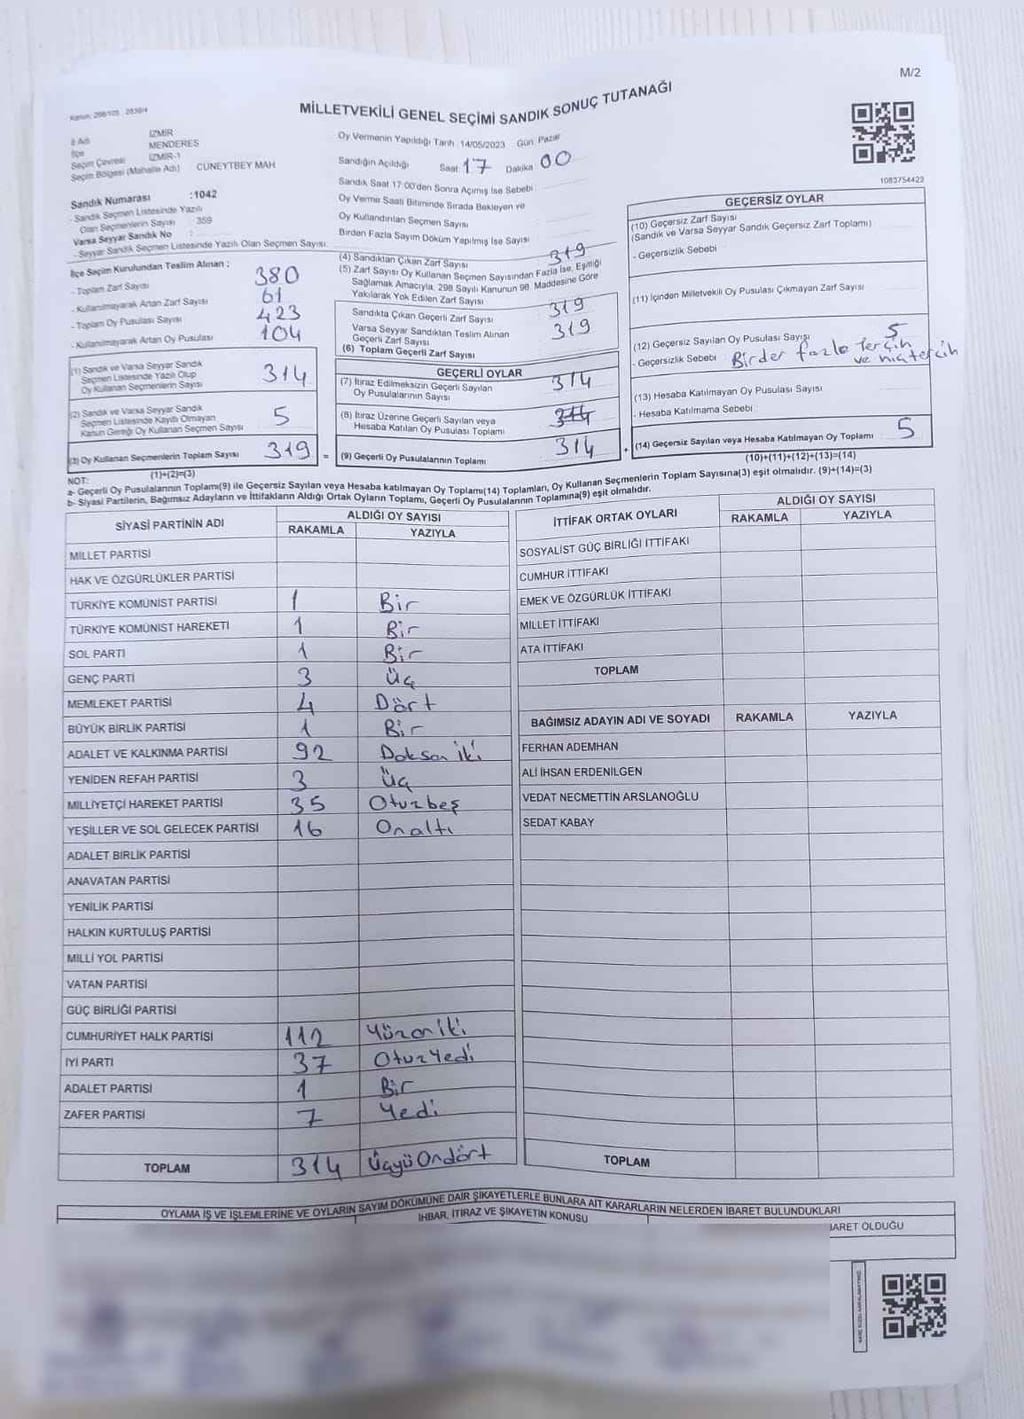 M/2
MİLLETVEKİLİ GENEL SEÇİMİ SANDIK SONUÇ TUTANAĞI
İl Adı İZMİR
İlçe MENDERES
Seçim Çevresi İZMİR-1
Seçim Bölgesi (Mahalle Adı) CÜNEYTBEY MAH
Oy Vermenin Yapıldığı Tarih : 14/05/2023 Gün: Pazar
Sandığın Açıldığı Saat: 17 Dakika 00
Sandık Saat 17:00'den Sonra Açılmış İse Sebebi
Oy Verme Saati Bitiminde Sırada Bekleyen ve
Oy Kullandırılan Seçmen Sayısı
Birden Fazla Sayım Döküm Yapılmış İse Sayısı
1083754423
Sandık Numarası :1042
- Sandık Seçmen Listesinde Yazılı
Olan Seçmenlerin Sayısı : 359
Varsa Seyyar Sandık No :
- Seyyar Sandık Seçmen Listesinde Yazılı Olan Seçmen Sayısı:
İlçe Seçim Kurulundan Teslim Alınan ;
- Toplam Zarf Sayısı 380
- Kullanılmayarak Artan Zarf Sayısı 61
- Toplam Oy Pusulası Sayısı 423
- Kullanılmayarak Artan Oy Pusulası 104
(1) Sandık ve Varsa Seyyar Sandık
Seçmen Listesinde Yazılı Olup
Oy Kullanan Seçmenlerin Sayısı 314
(2) Sandık ve Varsa Seyyar Sandık
Seçmen Listesinde Kayıtlı Olmayan
Kanun Gereği Oy Kullanan Seçmen Sayısı 5
(3) Oy Kullanan Seçmenlerin Toplam Sayısı 319 =
(1)+(2)=(3)
(4) Sandıktan Çıkan Zarf Sayısı 319
(5) Zarf Sayısı Oy Kullanan Seçmen Sayısından Fazla İse, Eşitliği
Sağlamak Amacıyla, 298 Sayılı Kanunun 98. Maddesine Göre
Yakılarak Yok Edilen Zarf Sayısı
Sandıkta Çıkan Geçerli Zarf Sayısı 319
Varsa Seyyar Sandıktan Teslim Alınan
Geçerli Zarf Sayısı 319
(6) Toplam Geçerli Zarf Sayısı
GEÇERLİ OYLAR
(7) İtiraz Edilmeksizin Geçerli Sayılan
Oy Pusulalarının Sayısı 314
(8) İtiraz Üzerine Geçerli Sayılan veya
Hesaba Katılan Oy Pusulası Toplamı 314
(9) Geçerli Oy Pusulalarının Toplamı 314
GEÇERSİZ OYLAR
(10) Geçersiz Zarf Sayısı
(Sandık ve Varsa Seyyar Sandık Geçersiz Zarf Toplamı)
- Geçersizlik Sebebi
(11) İçinden Milletvekili Oy Pusulası Çıkmayan Zarf Sayısı
(12) Geçersiz Sayılan Oy Pusulası Sayısı 5
- Geçersizlik Sebebi Birder fazla Terçih
ve
(13) Hesaba Katılmayan Oy Pusulası Sayısı
- Hesaba Katılmama Sebebi
+ (14) Geçersiz Sayılan veya Hesaba Katılmayan Oy Toplamı 5
(10)+(11)+(12)+(13)=(14)
NOT:
a- Geçerli Oy Pusulalarının Toplamı(9) ile Geçersiz Sayılan veya Hesaba katılmayan Oy Toplamı(14) Toplamları, Oy Kullanan Seçmenlerin Toplam Sayısına(3) eşit olmalıdır. (9)+(14)=(3)
b- Siyasi Partilerin, Bağımsız Adayların ve İttifakların Aldığı Ortak Oyların Toplamı, Geçerli Oy Pusulalarının Toplamına(9) eşit olmalıdır.
SİYASİ PARTİNİN ADI ALDIĞI OY SAYISI
RAKAMLA YAZIYLA
MİLLET PARTİSİ
HAK VE ÖZGÜRLÜKLER PARTİSİ
TÜRKİYE KOMÜNİST PARTİSİ 1 Bir
TÜRKİYE KOMÜNİST HAREKETİ 1 Bir
SOL PARTİ 1 Bir
GENÇ PARTİ 3 Üç
MEMLEKET PARTİSİ 4 Dört
BÜYÜK BİRLİK PARTİSİ 1 Bir
ADALET VE KALKINMA PARTİSİ 92 Doksan iki
YENİDEN REFAH PARTİSİ 3 Üç
MİLLİYETÇİ HAREKET PARTİSİ 35 Oturbeş
YEŞİLLER VE SOL GELECEK PARTİSİ 16 Onaltı
ADALET BİRLİK PARTİSİ
ANAVATAN PARTİSİ
YENİLİK PARTİSİ
HALKIN KURTULUŞ PARTİSİ
MİLLİ YOL PARTİSİ
VATAN PARTİSİ
GÜÇ BİRLİĞİ PARTİSİ
CUMHURİYET HALK PARTİSİ 112 Yüzoniki
İYİ PARTİ 37 Otuzyedi
ADALET PARTİSİ 1 Bir
ZAFER PARTİSİ 7 Yedi
TOPLAM 314 ÜçyüOndört
İTTİFAK ORTAK OYLARI ALDIĞI OY SAYISI
RAKAMLA YAZIYLA
SOSYALİST GÜÇ BİRLİĞİ İTTİFAKI
CUMHUR İTTİFAKI
EMEK VE ÖZGÜRLÜK İTTİFAKI
MİLLET İTTİFAKI
ATA İTTİFAKI
TOPLAM
BAĞIMSIZ ADAYIN ADI VE SOYADI RAKAMLA YAZIYLA
FERHAN ADEMHAN
ALİ İHSAN ERDENİLGEN
VEDAT NECMETTİN ARSLANOĞLU
SEDAT KABAY
TOPLAM
OYLAMA İŞ VE İŞLEMLERİNE VE OYLARIN SAYIM DÖKÜMÜNE DAİR ŞİKAYETLERLE BUNLARA AİT KARARLARIN NELERDEN İBARET BULUNDUKLARI
İHBAR, İTİRAZ VE ŞİKAYETİN KONUSU
İBARET OLDUĞU